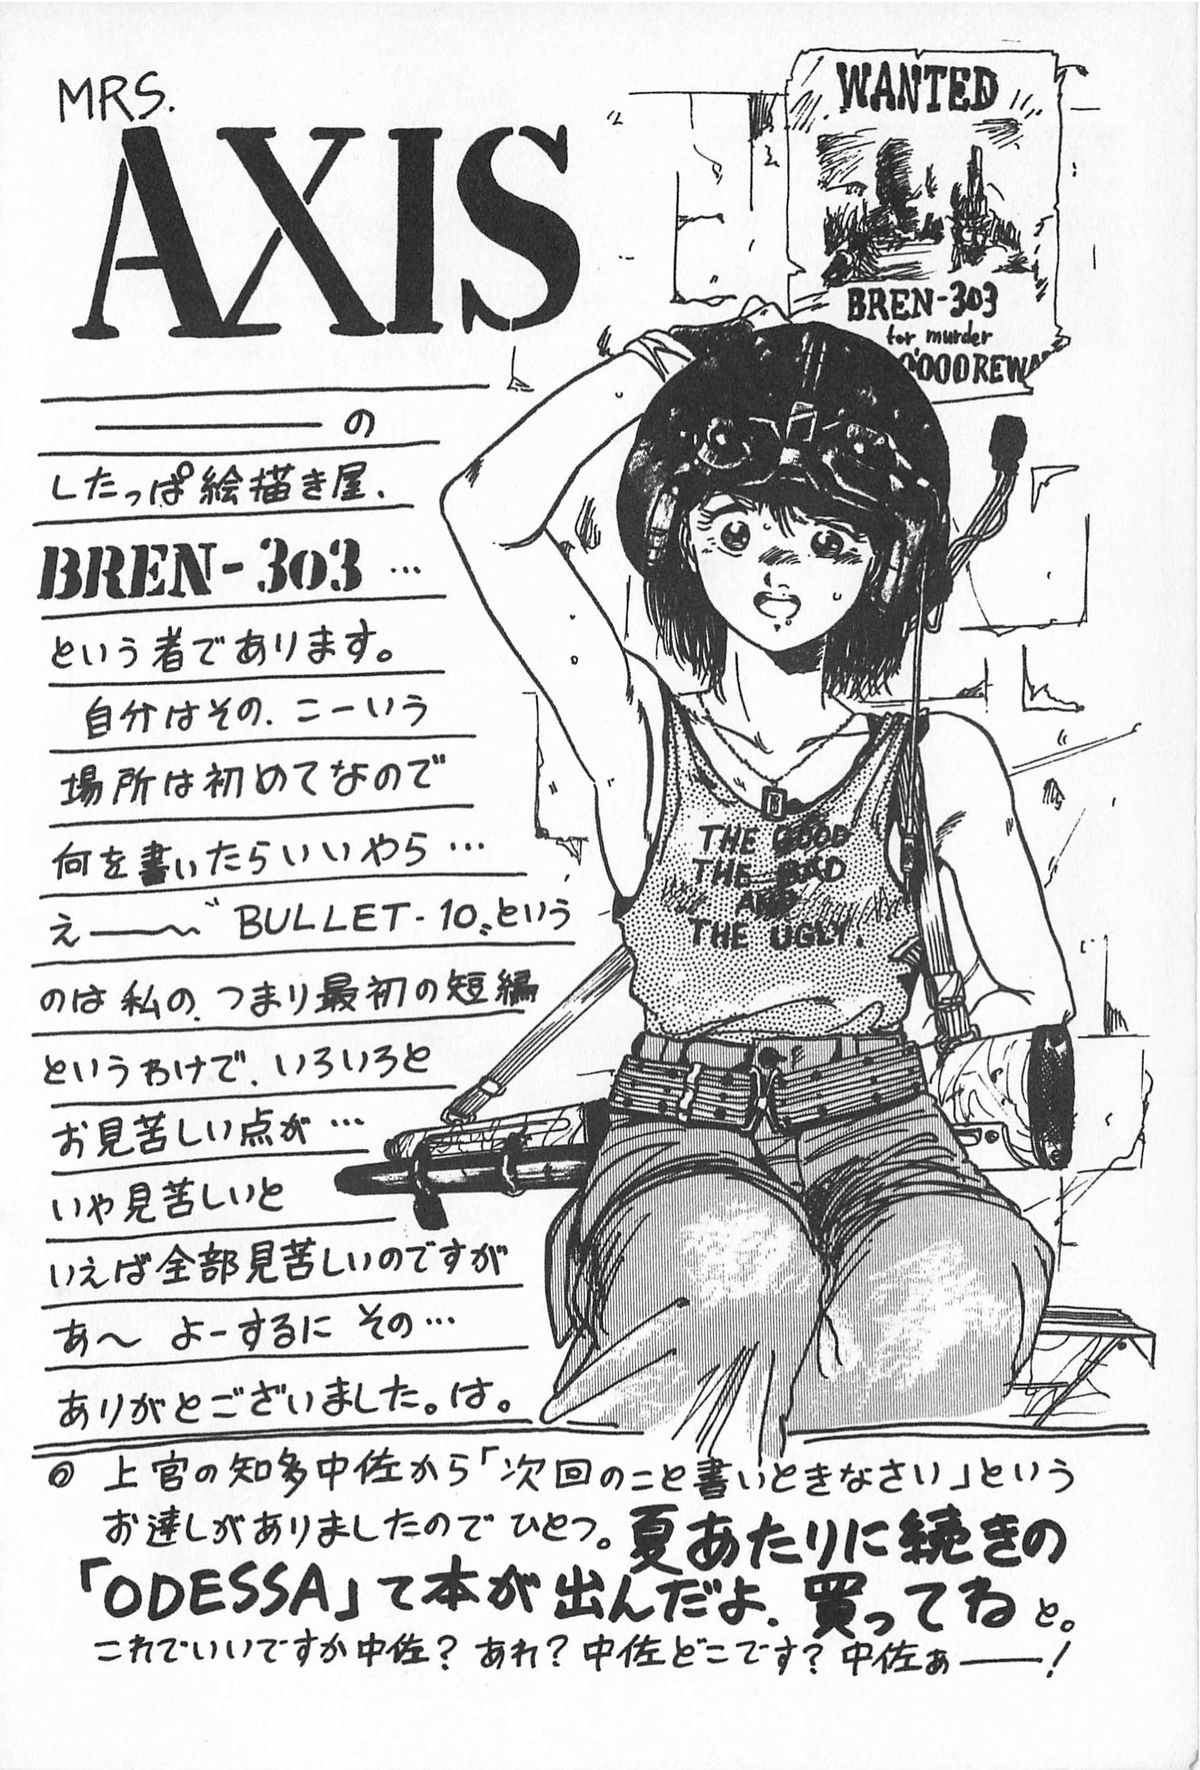 MRS.
AXIS
の
したっぱ絵描き屋、
BREN-303…
という者であります。
自分はその、こーいう
場所は初めてなので
何を書いたらいいやら…
えー〜〝BULLET-10〟という
のは私の、つまり最初の短編
というわけで、いろいろと
お見苦しい点が…
いや見苦しいと
いえば全部見苦しいのですが
あ〜 よーするに その…
ありがとございました。は。
WANTED
BREN-303
for murder
000REWA
THE GOOD
THE BAD
AND
THE UGLY!
◎ 上官の知多中佐から「次回のこと書いときなさい」という
お達しがありましたので ひとつ。夏あたりに続きの
「ODESSA」て本が出んだよ、買ってね と。
これでいいですか中佐? あれ? 中佐どこです? 中佐ぁ――!